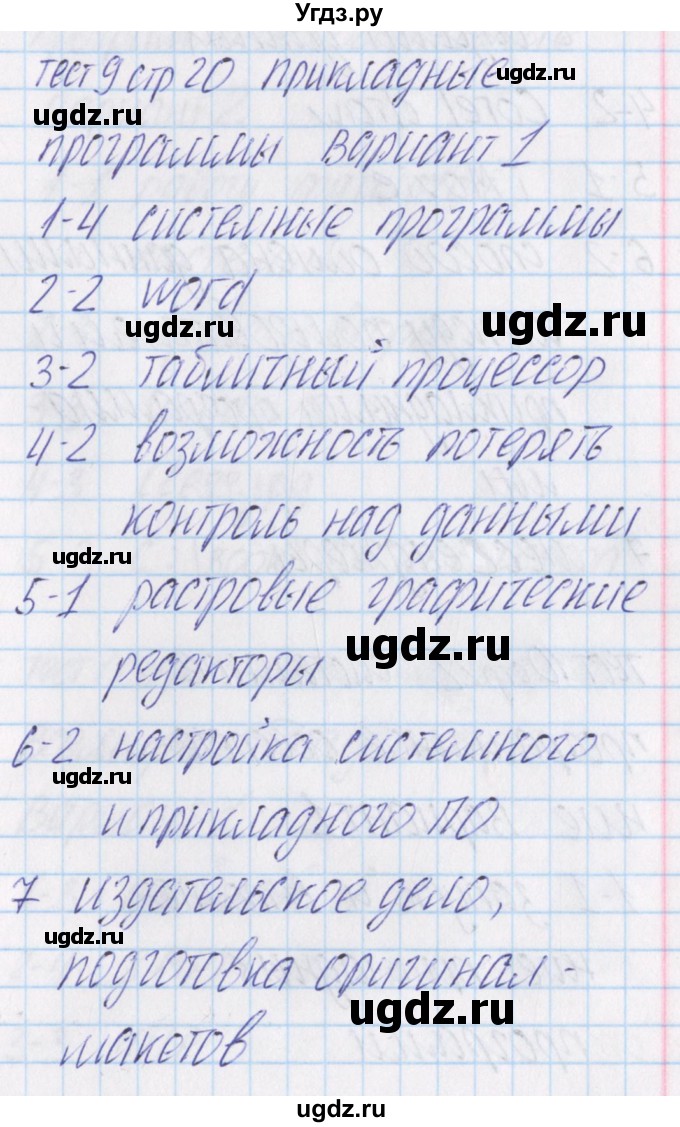 Угдз.ру
тест 9 стр 20 прикладные
ugdz.ru
ugdz.ru
программы вариант 1
1-4 системные программы
2-2 word
ugdz.ru
ugdz.ru
3-2 табличный процессор
4-2 возможность потерять
контроль над данными
ugdz.ru
5-1 растровые графические
ugdz.ru
редакторы
6-2 настройка системного
и прикладного ПО
7 издательское дело,
ugdz.ru
подготовка оригинал-
ugdz.ru
макетов
ugdz.ru